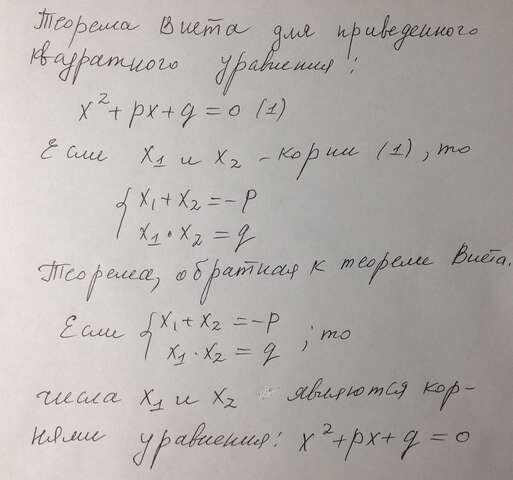 Теорема Виета для приведенного
квадратного уравнения:
x²+px+q=0 (1)
Если x₁ и x₂ - корни (1), то
{ x₁+x₂=-p
x₁·x₂=q
Теорема, обратная к теореме Виета.
Если { x₁+x₂=-p
x₁·x₂=q ; то
числа x₁ и x₂ являются кор-
нями уравнения: x²+px+q=0